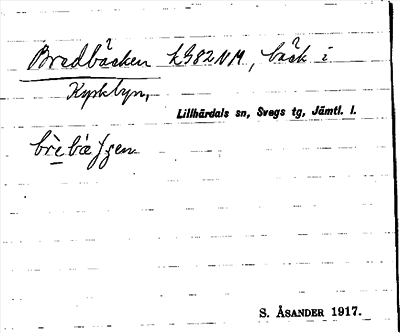 Bredbäcken k982NM, bäck i
Kyrkbyn,
Lillhärdals sn, Svegs tg, Jämtl. l.
S. ÅSANDER 1917.